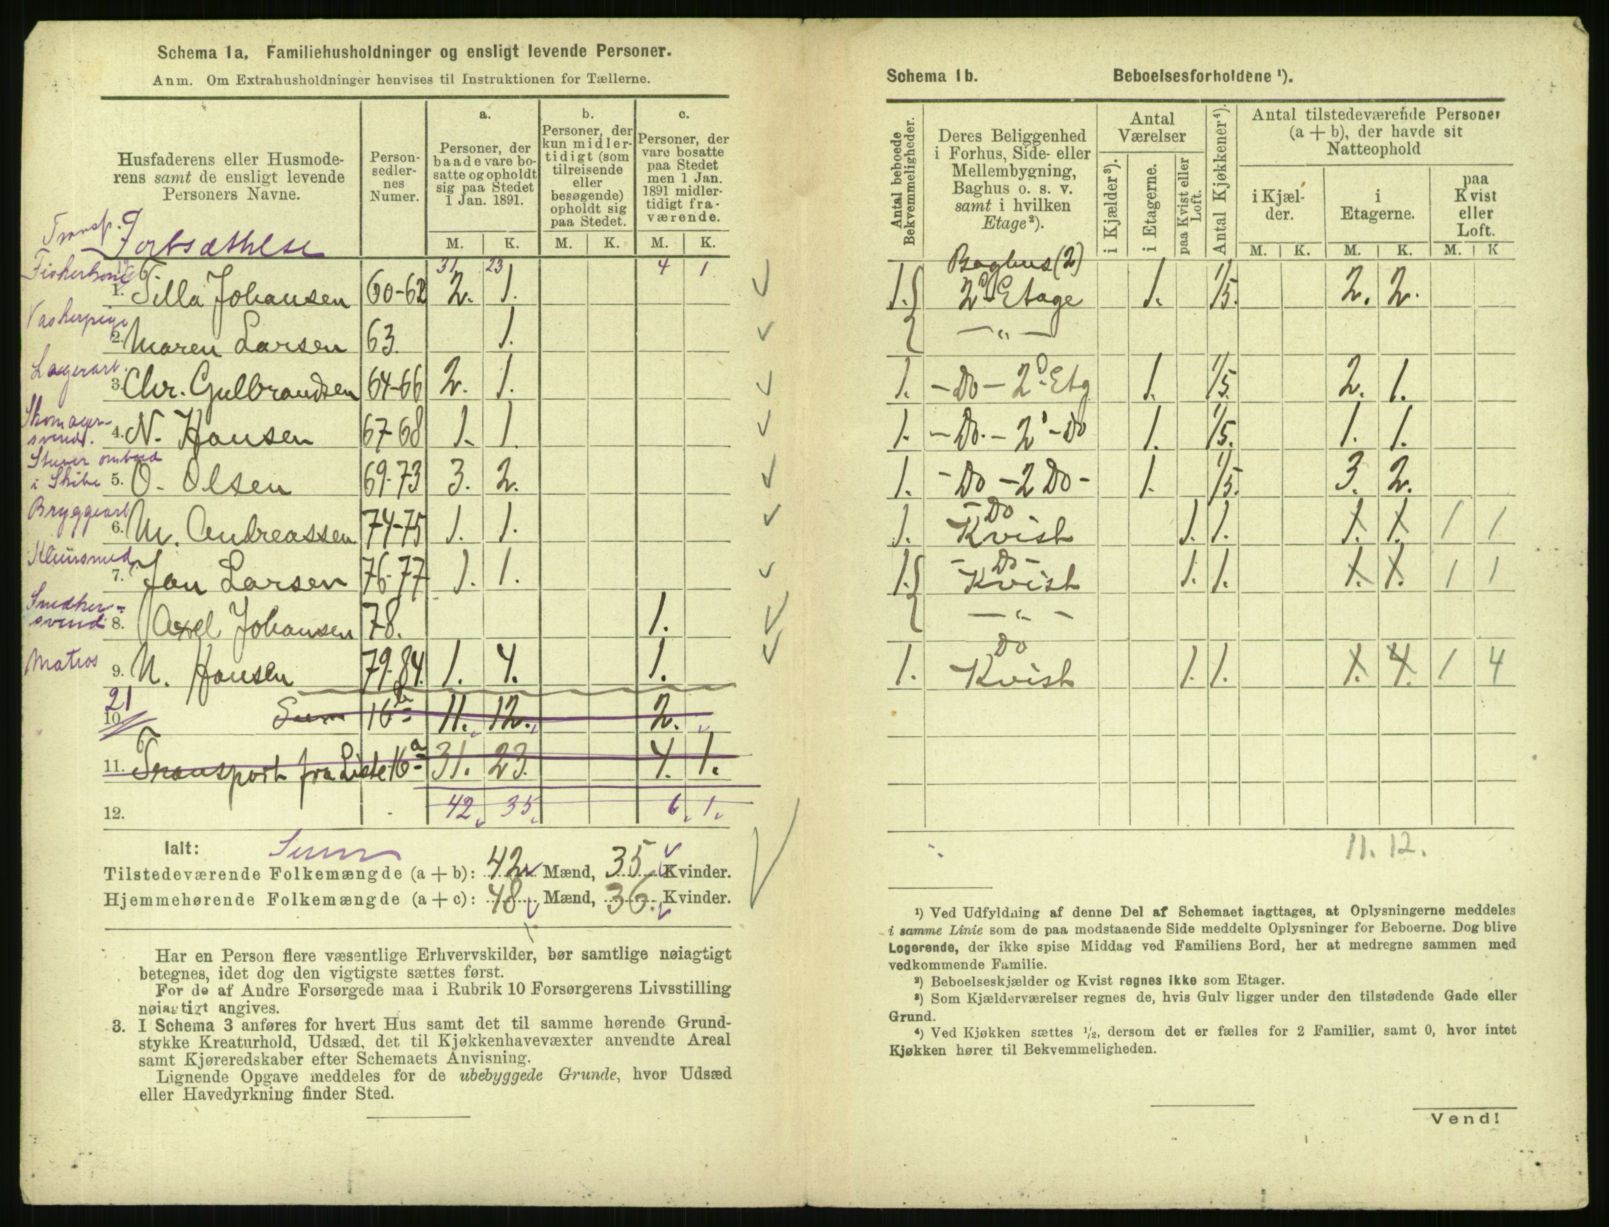 Schema 1a. Familiehusholdninger og ensligt levende Personer.
Anm. Om Extrahusholdninger henvises til Instruktionen for Tællerne.
Husfaderens eller Husmode-
rens samt de ensligt levende
Personers Navne.
Person-
sedler-
nes
Numer.
a.
Personer, der
baade vare bo-
satte og opholdt
sig paa Stedet
1 Jan. 1891.
b.
Personer, der
kun midler-
tidigt (som
tilreisende
eller
besøgende)
opholdt sig
paa Stedet.
c.
Personer, der
vare bosatte
paa Stedet
men 1 Jan.
1891 midler-
tidigt fra-
værende.
M. K. M. K. M. K.
Transp.
Fortsættelse
31 23 4 1
Fiskerkone
1. Tilla Johansen 60-62 2. 1.
Vaskerpige
2. Maren Larsen 63. 1.
Lagerarb.
3. Chr. Gulbrandsen 64-66 2. 1.
Skomager-
svend.
4. N. Hansen 67-68 1. 1.
i Skibe
5. O. Olsen 69-73 3. 2.
Bryggearb
6. M. Andreassen 74-75 1. 1.
Kleinsmed
7. Jan Larsen 76-77 1. 1.
Snedker-
svend
8. Axel Johansen 78. 1.
Matros
9. N. Hansen 79-84. 1. 4. 1.
21
10. Sum 16b 11. 12. 2.
11. Transport fra Liste 16a 31. 23. 4. 1.
12. 42. 35. 6. 1.
Ialt: Sum
Tilstedeværende Folkemængde (a + b): 42 Mænd, 35 Kvinder.
Hjemmehørende Folkemængde (a + c): 48 Mænd, 36. Kvinder.
Har en Person flere væsentlige Erhvervskilder, bør samtlige nøiagtigt
betegnes, idet dog den vigtigste sættes først.
For de af Andre Forsørgede maa i Rubrik 10 Forsørgerens Livsstilling
nøiagtigt angives.
3. I Schema 3 anføres for hvert Hus samt det til samme hørende Grund-
stykke Kreaturhold, Udsæd, det til Kjøkkenhavevæxter anvendte Areal
samt Kjøreredskaber efter Schemaets Anvisning.
Lignende Opgave meddeles for de ubebyggede Grunde, hvor Udsæd
eller Havedyrkning finder Sted.
Schema 1b. Beboelsesforholdene ¹).
Antal beboede
Bekvemmeligheder.
Deres Beliggenhed
i Forhus, Side- eller
Mellembygning,
Baghus o. s. v.
samt i hvilken
Etage²).
Antal
Værelser
i Kjælder³).
i Etagerne.
paa Kvist eller
Loft.
Antal Kjøkkener⁴).
Antal tilstedeværende Personer
(a + b), der havde sit
Natteophold
i Kjæl-
der.
i
Etagerne.
paa
Kvist
eller
Loft.
M. K. M. K. M. K
Baghus (2)
1. 2d Etage 1. 1/5. 2. 2.
— „ —
1. - Do - 2d Etg 1. 1/5. 2. 1.
1. - Do. - 2' - Do 1. 1/5. 1. 1.
1. - Do - 2 Do - 1. 1/5. 3. 2.
- Do
1. Kvist 1. 1. 1. 1. 1 1
- Do -
1. Kvist 1. 1. 1. 1. 1 1
— „ —
Do
1. Kvist 1. 1. 1. 4. 1 4
11. 12.
¹) Ved Udfyldning af denne Del af Schemaet iagttages, at Oplysningerne meddeles
i samme Linie som de paa modstaaende Side meddelte Oplysninger for Beboerne. Dog blive
Logerende, der ikke spise Middag ved Familiens Bord, her at medregne sammen med
vedkommende Familie.
²) Beboelseskjælder og Kvist regnes ikke som Etager.
³) Som Kjælderværelser regnes de, hvis Gulv ligger under den tilstødende Gade eller
Grund.
⁴) Ved Kjøkken sættes ¹/₂, dersom det er fælles for 2 Familier, samt 0, hvor intet
Kjøkken hører til Bekvemmeligheden.
Vend!